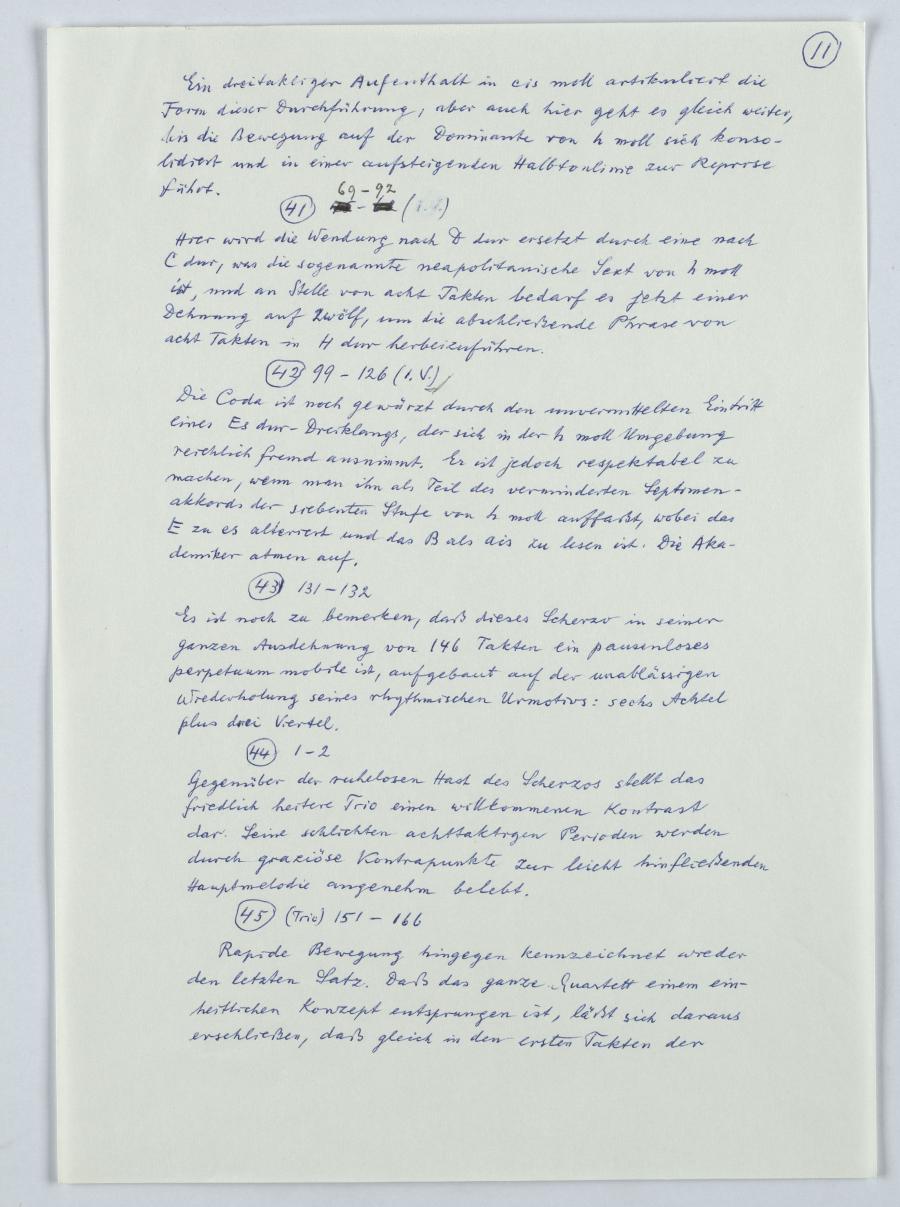 11
Ein dreitaktiger Aufenthalt in cis moll artikuliert die
Form dieser Durchführung, aber auch hier geht es gleich weiter,
bis die Bewegung auf der Dominante von h moll sich konso-
lidiert und in einer aufsteigenden Halbtonlinie zur Reprise
führt.
69 - 92
41 - (I.V.)
Hier wird die Wendung nach D dur ersetzt durch eine nach
C dur, was die sogenannte neapolitanische Sext von h moll
ist, und an Stelle von acht Takten bedarf es jetzt einer
Dehnung auf zwölf, um die abschließende Phrase von
acht Takten in H dur herbeizuführen.
42 99 - 126 (I.V.)
Die Coda ist noch gewürzt durch den unvermittelten Eintritt
eines Es dur-Dreiklangs, der sich in der h moll Umgebung
reichlich fremd ausnimmt. Er ist jedoch respektabel zu
machen, wenn man ihn als Teil des verminderten Septimen-
akkords der siebenten Stufe von h moll auffaßt, wobei das
E zu es alteriert und das B als ais zu lesen ist. Die Aka-
demiker atmen auf.
43 131 - 132
Es ist noch zu bemerken, daß dieses Scherzo in seiner
ganzen Ausdehnung von 146 Takten ein pausenloses
perpetuum mobile ist, aufgebaut auf der unablässigen
Wiederholung seines rhythmischen Urmotivs: sechs Achtel
plus drei Viertel.
44 1 - 2
Gegenüber der ruhelosen Hast des Scherzos stellt das
friedlich heitere Trio einen willkommenen Kontrast
dar. Seine schlichten achttaktigen Perioden werden
durch graziöse Kontrapunkte zur leicht hinfließenden
Hauptmelodie angenehm belebt.
45 (Trio) 151 - 166
Rapide Bewegung hingegen kennzeichnet wieder
den letzten Satz. Daß das ganze Quartett einem ein-
heitlichen Konzept entsprungen ist, läßt sich daraus
erschließen, daß gleich in den ersten Takten der